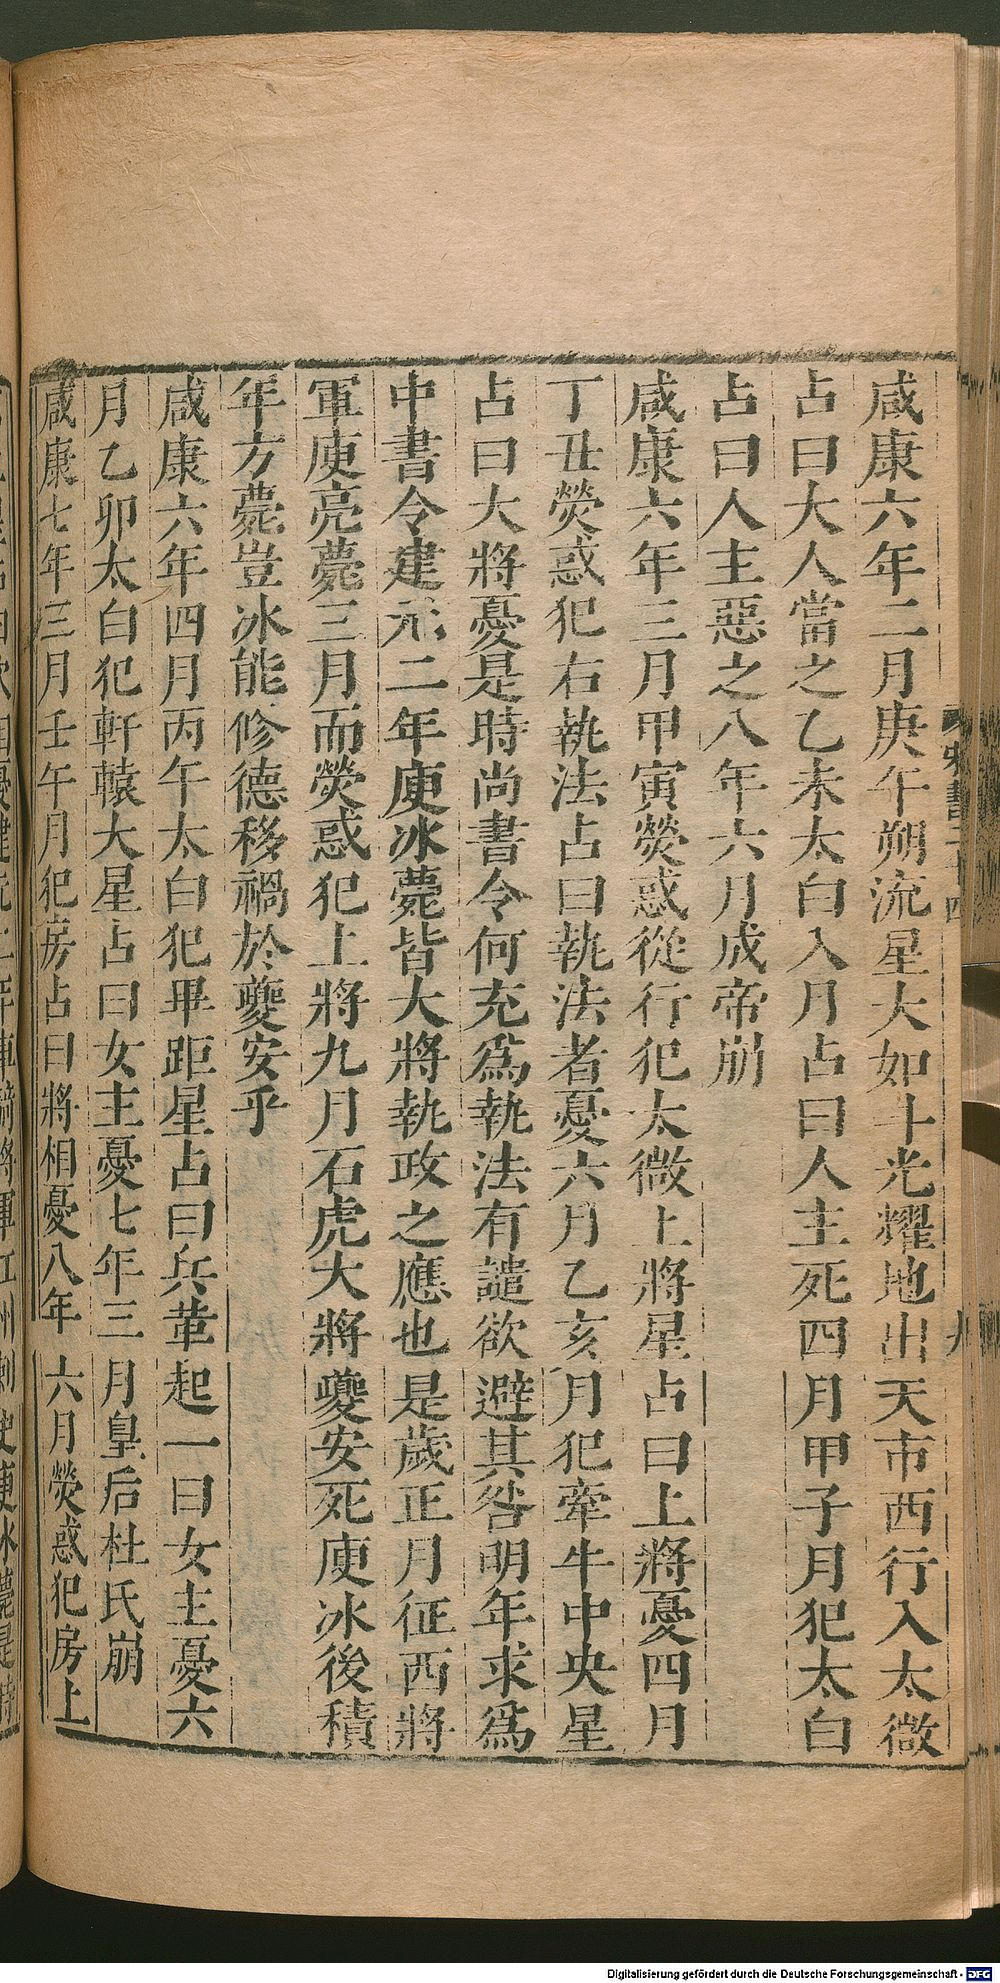 咸康六年二月庚午朔流星大如斗光耀地出天市西行入太微
占曰大人當之乙未太白入月占曰人主死四月甲子月犯太白
占曰人主惡之八年六月成帝崩
咸康六年三月甲寅熒惑從行犯太微上將星占曰上將憂四月
丁丑熒惑犯右執法占曰執法者憂六月乙亥月犯牽牛中央星
占曰大將憂是時尚書令何充爲執法有譴欲避其咎明年求爲
中書令建元二年庾冰薨皆大將執政之應也是歲正月征西將
軍庾亮薨三月而熒惑犯上將九月石虎大將夔安死庾冰後積
年方薨豈冰能修德移禍於夔安乎
咸康六年四月丙午太白犯畢距星占曰兵革起一曰女主憂六
月乙卯太白犯軒轅大星占曰女主憂七年三月皇后杜氏崩
咸康七年三月壬午月犯房占曰將相憂八年六月熒惑犯房上
Digitalisierung gefördert durch die Deutsche Forschungsgemeinschaft - DFG